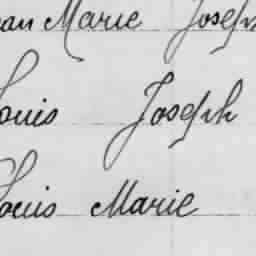 ean Marie Joseph
Louis Joseph
Louis Marie